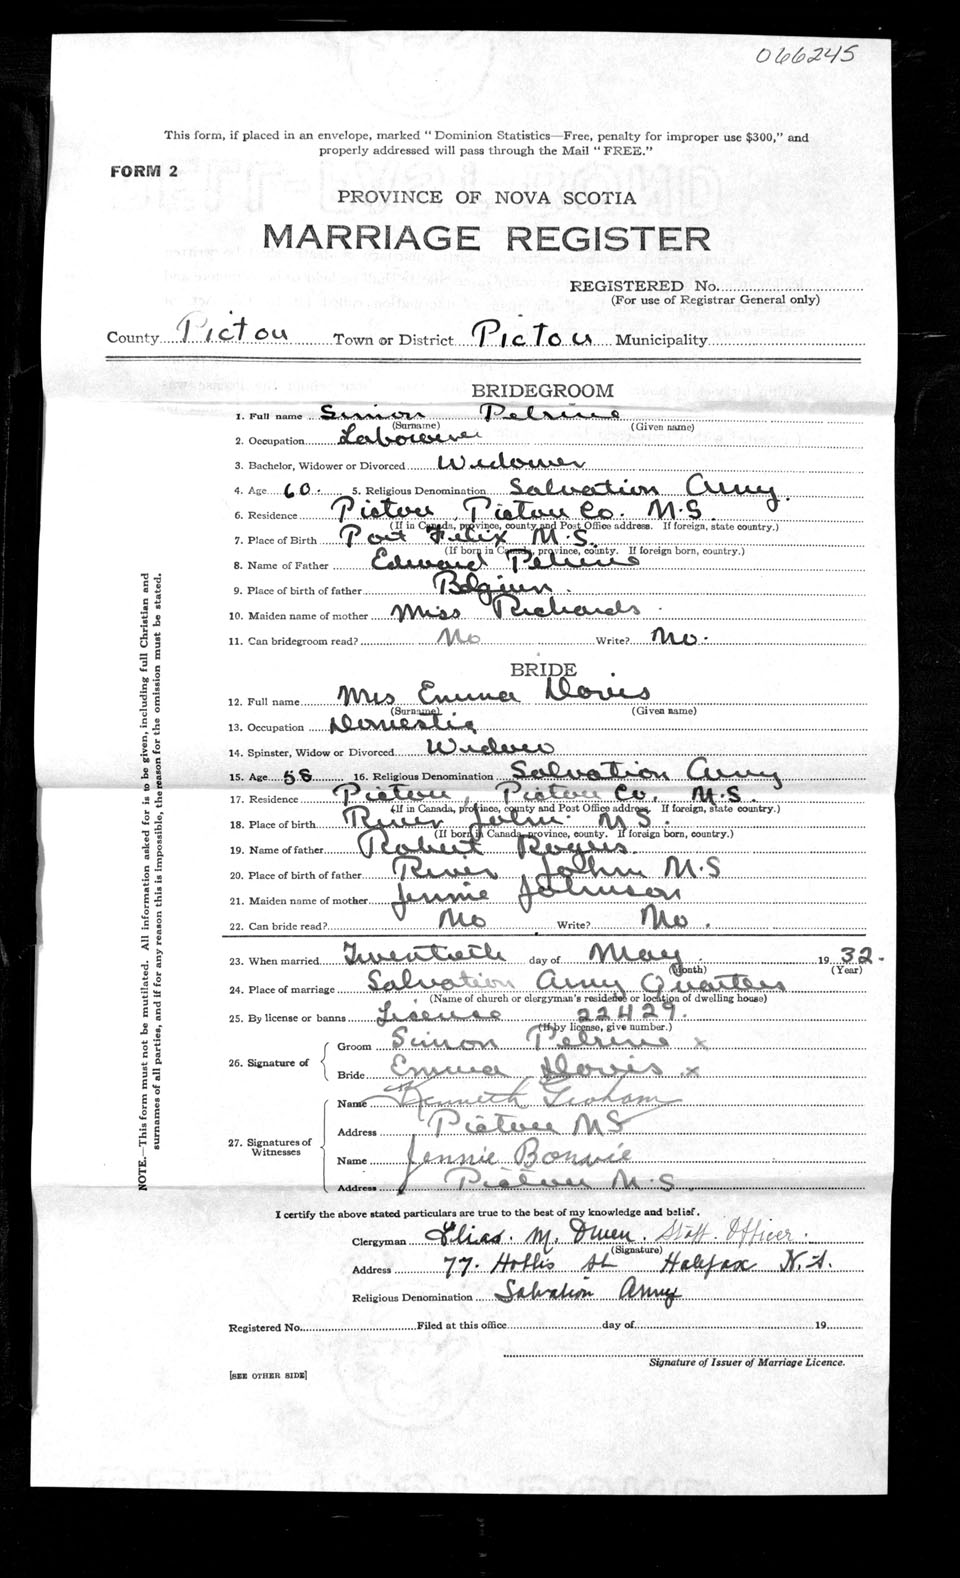 066245
This form, if placed in an envelope, marked "Dominion Statistics—Free, penalty for improper use $300," and
properly addressed will pass through the Mail "FREE."
FORM 2
PROVINCE OF NOVA SCOTIA
MARRIAGE REGISTER
REGISTERED No.
(For use of Registrar General only)
County Pictou Town or District Pictou Municipality
BRIDEGROOM
1. Full name Simon Petrine
(Surname) (Given name)
2. Occupation Labourer
3. Bachelor, Widower or Divorced Widower
4. Age 60. 5. Religious Denomination Salvation Army.
6. Residence Pictou, Pictou Co. N.S.
(If in Canada, province, county and Post Office address. If foreign, state country.)
7. Place of Birth Port Felix N.S.
(If born in Canada, province, county. If foreign born, country.)
8. Name of Father Edward Petrine
9. Place of birth of father Belgium.
10. Maiden name of mother Miss Richards.
11. Can bridegroom read? No Write? No.
BRIDE
12. Full name Mrs Emma Davis
(Surname) (Given name)
13. Occupation Domestic
14. Spinster, Widow or Divorced Widow
15. Age 58 16. Religious Denomination Salvation Army
17. Residence Pictou, Pictou Co. N.S.
(If in Canada, province, county and Post Office address. If foreign, state country.)
18. Place of birth River John. N.S.
(If born in Canada, province, county. If foreign born, country.)
19. Name of father Robert Rogers.
20. Place of birth of father River John N.S
21. Maiden name of mother Jennie Johnson
22. Can bride read? No Write? No.
23. When married Twentieth day of May 1932.
(Month) (Year)
24. Place of marriage Salvation Army Quarters
(Name of church or clergyman's residence or location of dwelling house)
25. By license or banns License 22429.
(If by license, give number.)
26. Signature of
Groom Simon Petrine x
Bride Emma Davis x
27. Signatures of Witnesses
Name Kenneth Graham
Address Pictou NS
Name Jennie Bonvie
Address Pictou N.S
I certify the above stated particulars are true to the best of my knowledge and belief.
Clergyman Elias. M. Owen. Staff. Officer.
(Signature)
Address 77. Hollis St. Halifax N.S.
Religious Denomination Salvation Army
Registered No. Filed at this office day of 19
Signature of Issuer of Marriage Licence.
[SEE OTHER SIDE]
NOTE.—This form must not be mutilated. All information asked for is to be given, including full Christian and
surnames of all parties, and if for any reason this is impossible, the reason for the omission must be stated.